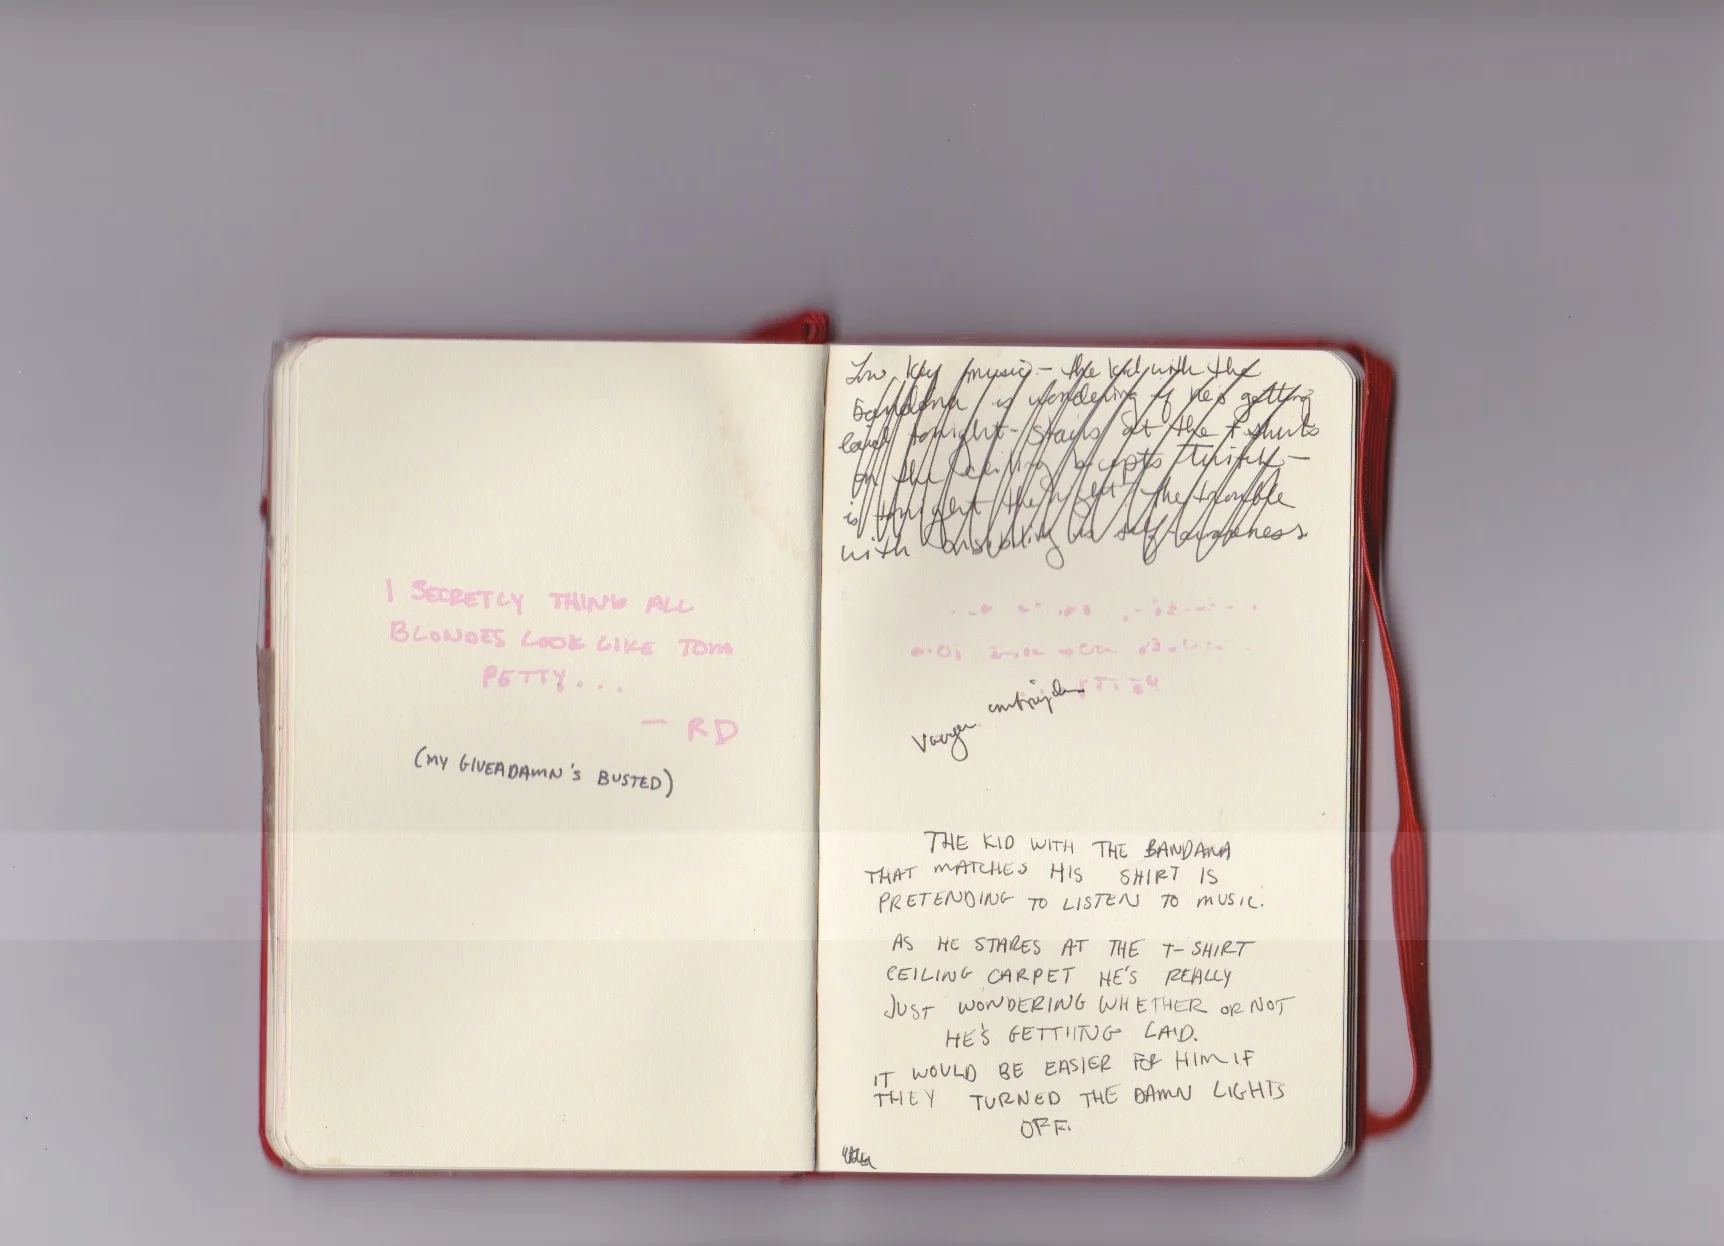 I SECRETLY THINK ALL
BLONDES LOOK LIKE TOM
PETTY...
— RD
(MY GIVEADAMN'S BUSTED)
Low key music – the kid with the
bandana is wondering if he's getting
laid tonight – stairs at the t-shirts
on the ceiling
is tonight the night the trouble
with is self-awareness
THE KID WITH THE BANDANA
THAT MATCHES HIS SHIRT IS
PRETENDING TO LISTEN TO MUSIC.
AS HE STARES AT THE T-SHIRT
CEILING CARPET HE'S REALLY
JUST WONDERING WHETHER OR NOT
HE'S GETTIING LAID.
IT WOULD BE EASIER FOR HIM IF
THEY TURNED THE DAMN LIGHTS
OFF.